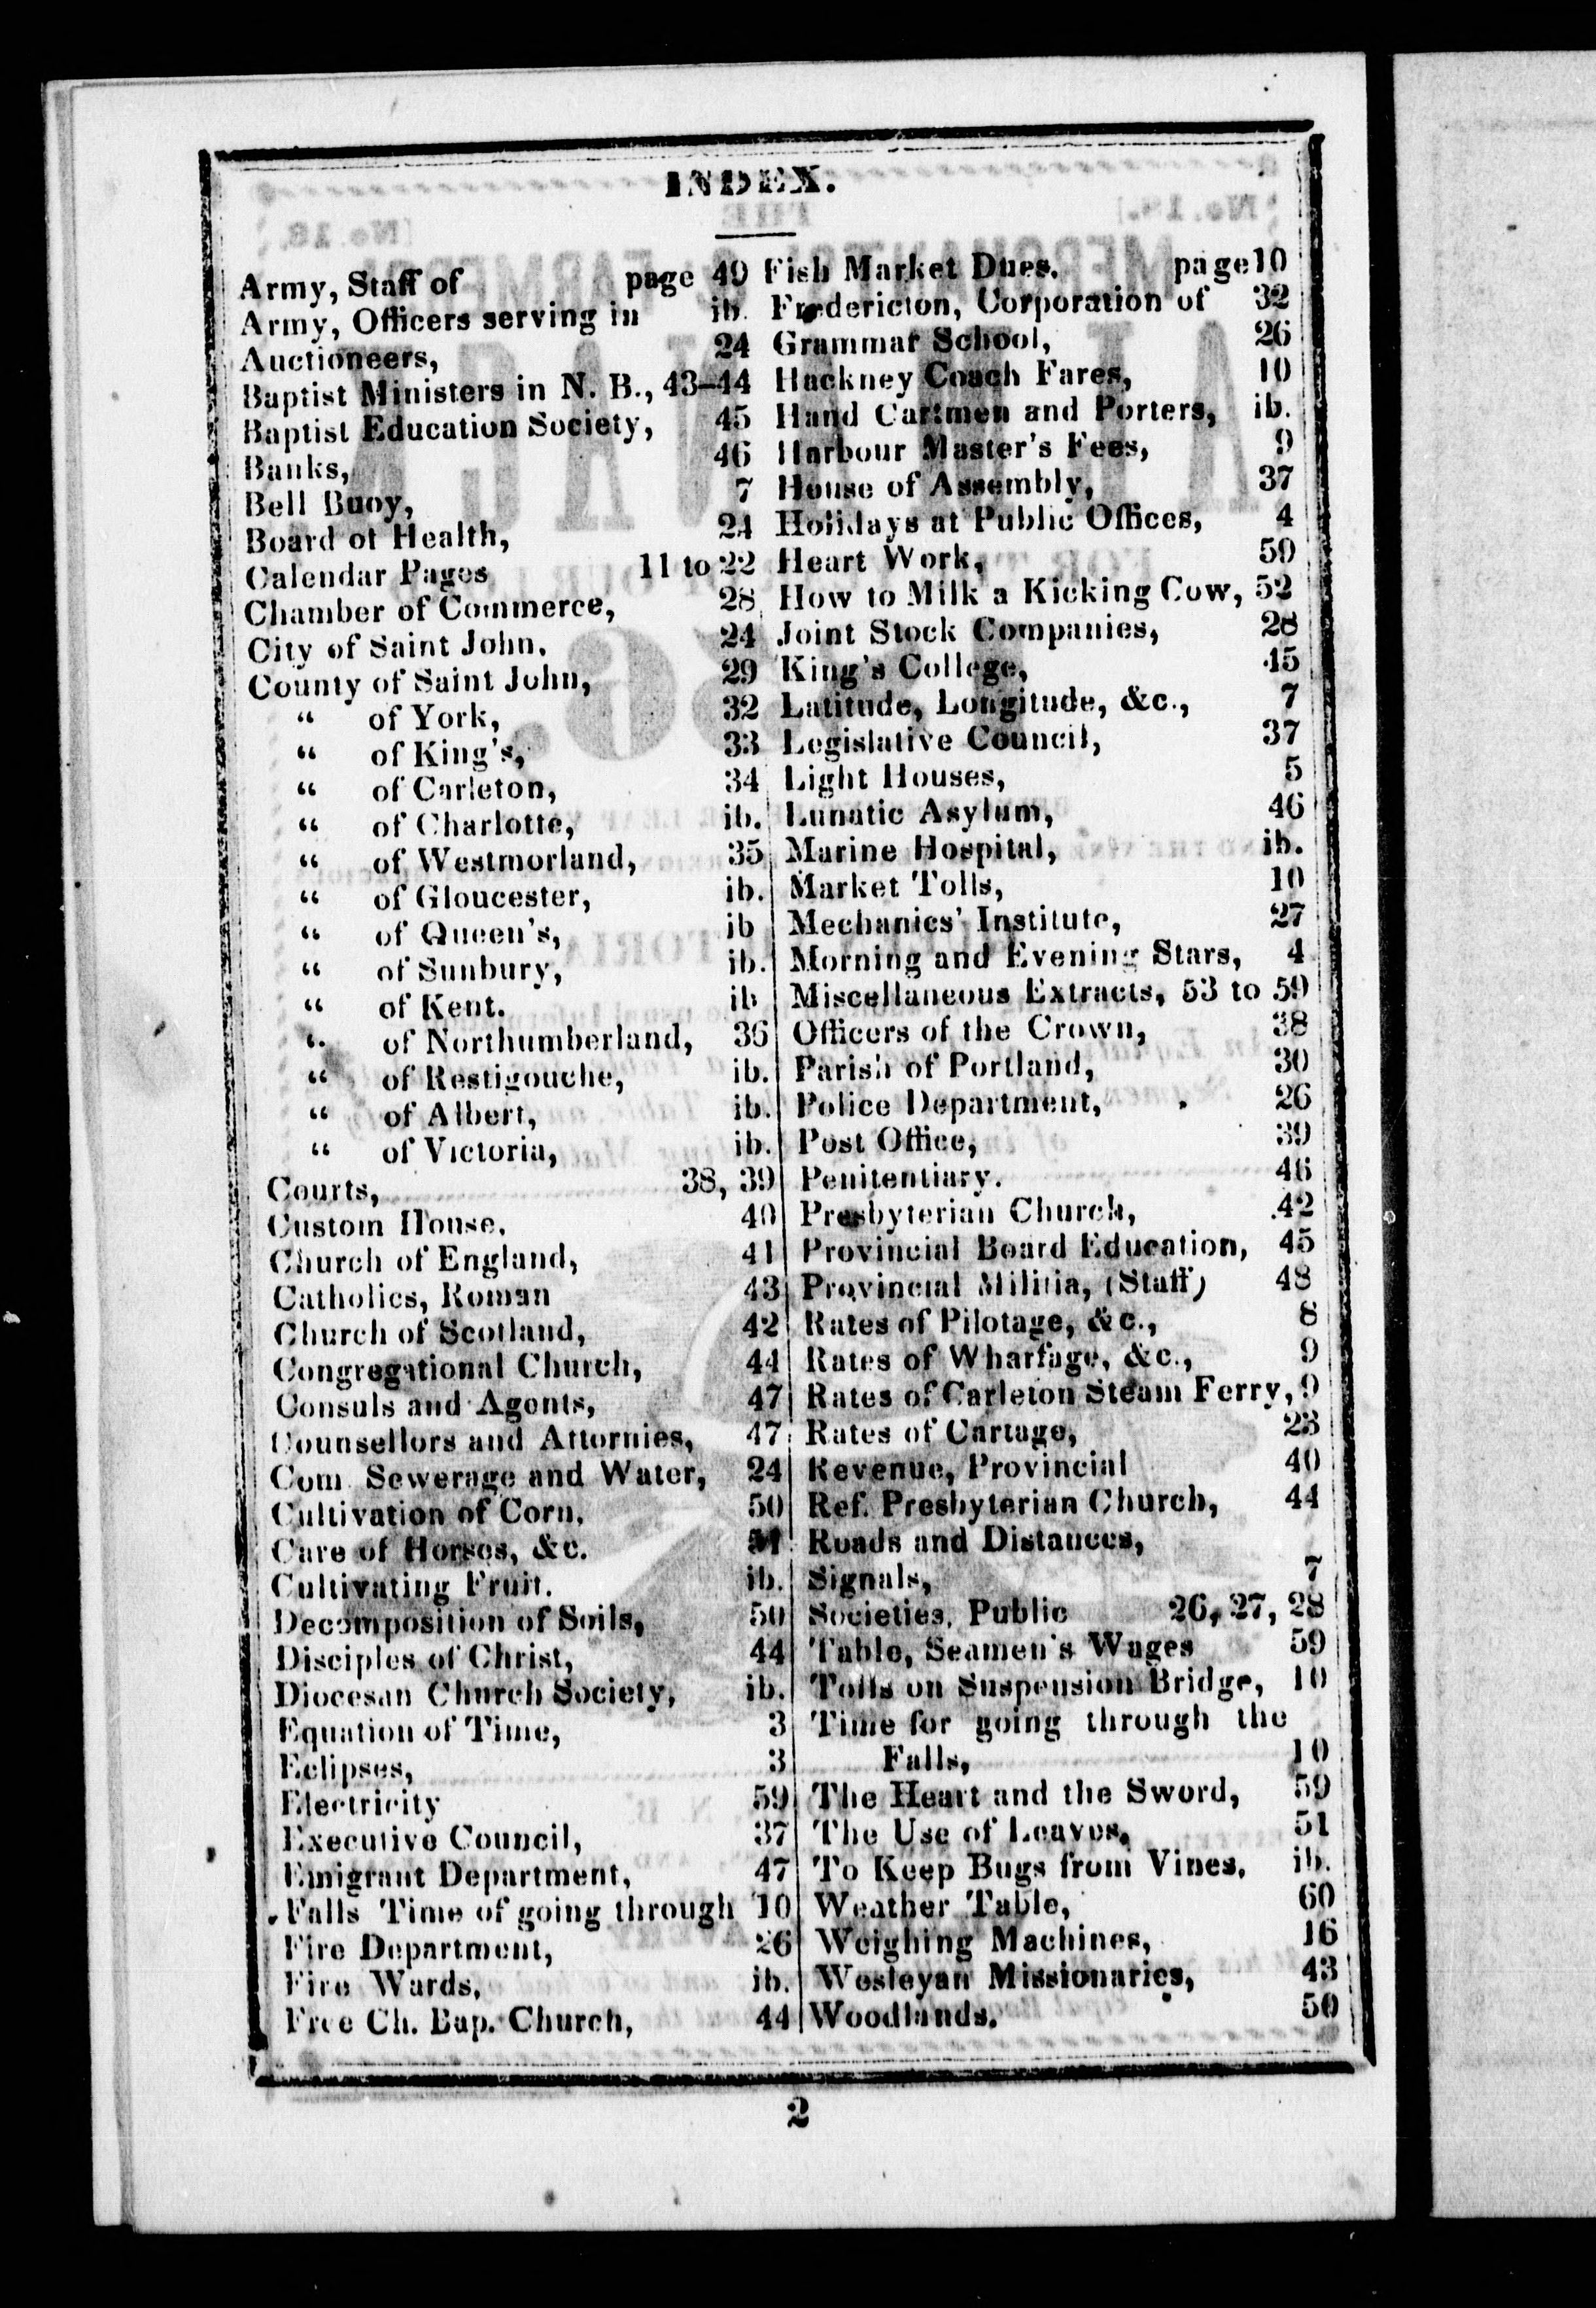 INDEX.
Army, Staff of page 49
Army, Officers serving in ib.
Auctioneers, 24
Baptist Ministers in N. B., 43–44
Baptist Education Society, 45
Banks, 46
Bell Buoy, 7
Board of Health, 24
Calendar Pages 11 to 22
Chamber of Commerce, 28
City of Saint John, 24
County of Saint John, 29
“ of York, 32
“ of King's, 33
“ of Carleton, 34
“ of Charlotte, ib.
“ of Westmorland, 35
“ of Gloucester, ib.
“ of Queen's, ib
“ of Sunbury, ib.
“ of Kent. ib
“ of Northumberland, 36
“ of Restigouche, ib.
“ of Albert, ib.
“ of Victoria, ib.
Courts, 38, 39
Custom House, 40
Church of England, 41
Catholics, Roman 43
Church of Scotland, 42
Congregational Church, 44
Consuls and Agents, 47
Counsellors and Attornies, 47
Com. Sewerage and Water, 24
Cultivation of Corn, 50
Care of Horses, &c.
Cultivating Fruit. ib.
Decomposition of Soils, 50
Disciples of Christ, 44
Diocesan Church Society, ib.
Equation of Time, 3
Eclipses, 3
Electricity 59
Executive Council, 37
Emigrant Department, 47
Falls Time of going through 10
Fire Department, 26
Fire Wards, ib.
Free Ch. Bap. Church, 44
Fish Market Dues. page 10
Fredericton, Corporation of 32
Grammar School, 26
Hackney Coach Fares, 10
Hand Cartmen and Porters, ib.
Harbour Master's Fees, 9
House of Assembly, 37
Holidays at Public Offices, 4
Heart Work, 59
How to Milk a Kicking Cow, 52
Joint Stock Companies, 28
King's College, 45
Latitude, Longitude, &c., 7
Legislative Council, 37
Light Houses, 5
Lunatic Asylum, 46
Marine Hospital, ib.
Market Tolls, 10
Mechanics' Institute, 27
Morning and Evening Stars, 4
Miscellaneous Extracts, 53 to 59
Officers of the Crown, 38
Parish of Portland, 30
Police Department, 26
Post Office, 39
Penitentiary. 46
Presbyterian Church, 42
Provincial Board Education, 45
Provincial Militia, (Staff) 48
Rates of Pilotage, &c., 8
Rates of Wharfage, &c., 9
Rates of Carleton Steam Ferry, 9
Rates of Cartage, 23
Revenue, Provincial 40
Ref. Presbyterian Church, 44
Roads and Distances,
Signals, 7
Societies, Public 26, 27, 28
Table, Seamen's Wages 59
Tolls on Suspension Bridge, 10
Time for going through the
Falls, 10
The Heart and the Sword, 59
The Use of Leaves, 51
To Keep Bugs from Vines, ib.
Weather Table, 60
Weighing Machines, 16
Wesleyan Missionaries, 43
Woodlands. 50
2